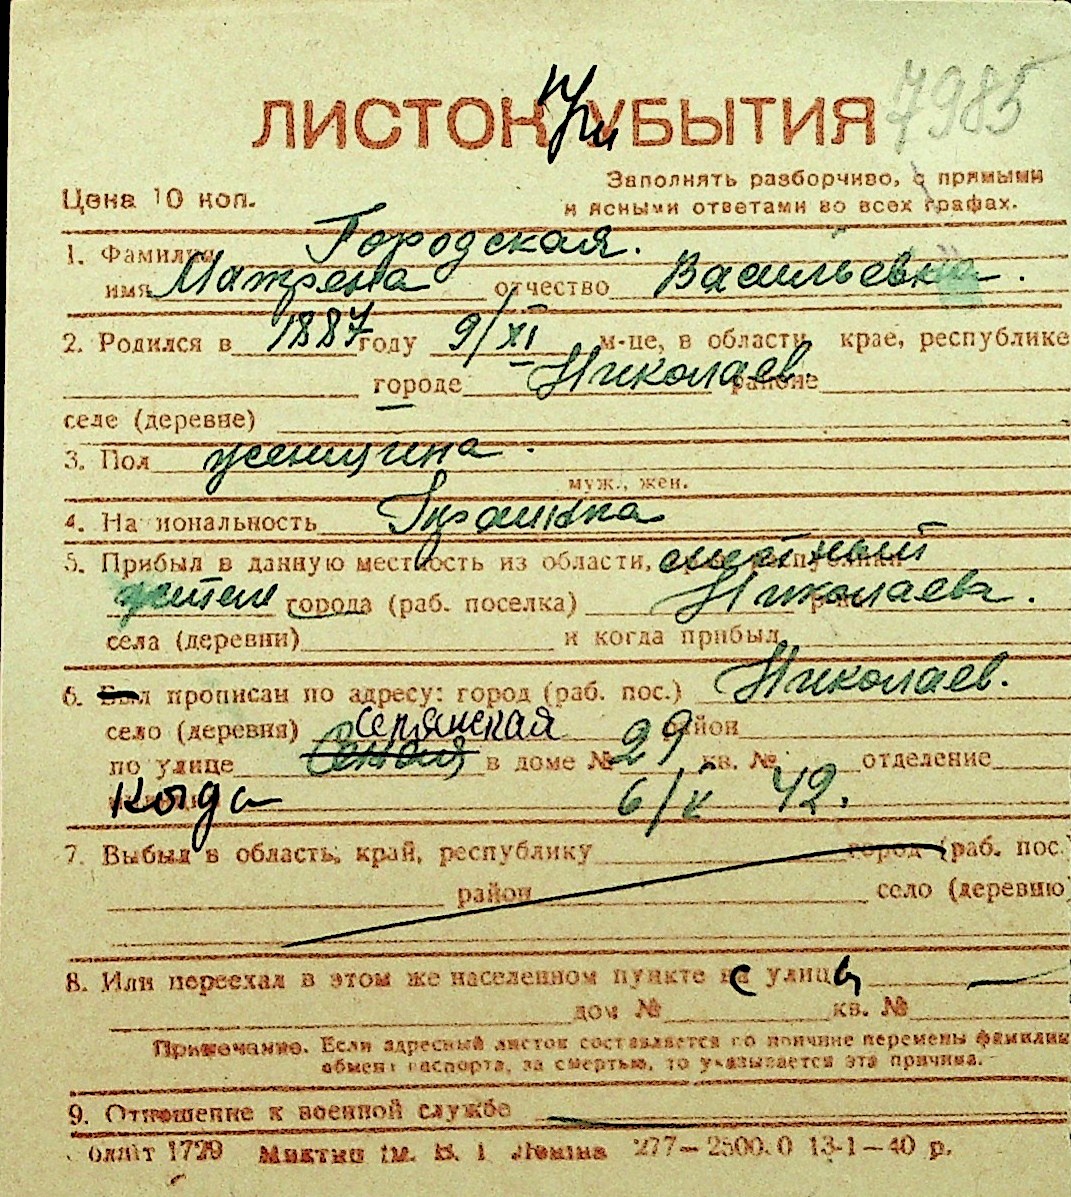 7985
ЛИСТОК при УБЫТИЯ
Цена 10 коп.
Заполнять разборчиво, с прямыми
и ясными ответами во всех графах.
1. Фамилия Городская.
имя Матрена отчество Васильевна.
2. Родился в 1887 году 9/XI м-це, в области, крае, республике
городе Николаев. районе
селе (деревне)
3. Пол женщина.
муж., жен.
4. Национальность
5. Прибыл в данную местность из области, местный республики
жител города (раб. поселка) Николаева.
села (деревни) и когда прибыл
6. Был прописан по адресу: город (раб. пос.) Николаев.
село (деревня) район
по улице Сенная в доме № 29 кв. № отделение
Когда 6/V 42.
7. Выбыл в область, край, республику город (раб. пос.)
район село (деревню)
8. Или переехал в этом же населенном пункте с улицы
дом № кв. №
Примечание. Если адресный листок составляется по причине перемены фамилии
обмена паспорта, за смертью, то указывается эта причина.
9. Отношение к военной службе
1729 277—2500.0 13-1—40 р.